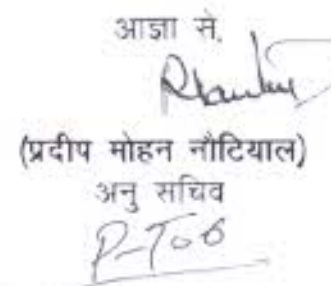 आज्ञा से,
(प्रदीप मोहन नौटियाल)
अनु सचिव
P-T.O